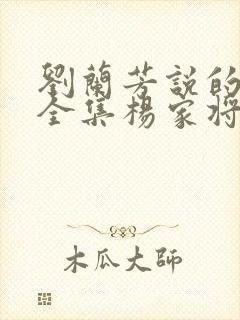 劉蘭芳説的
全集楊家將
木瓜大師